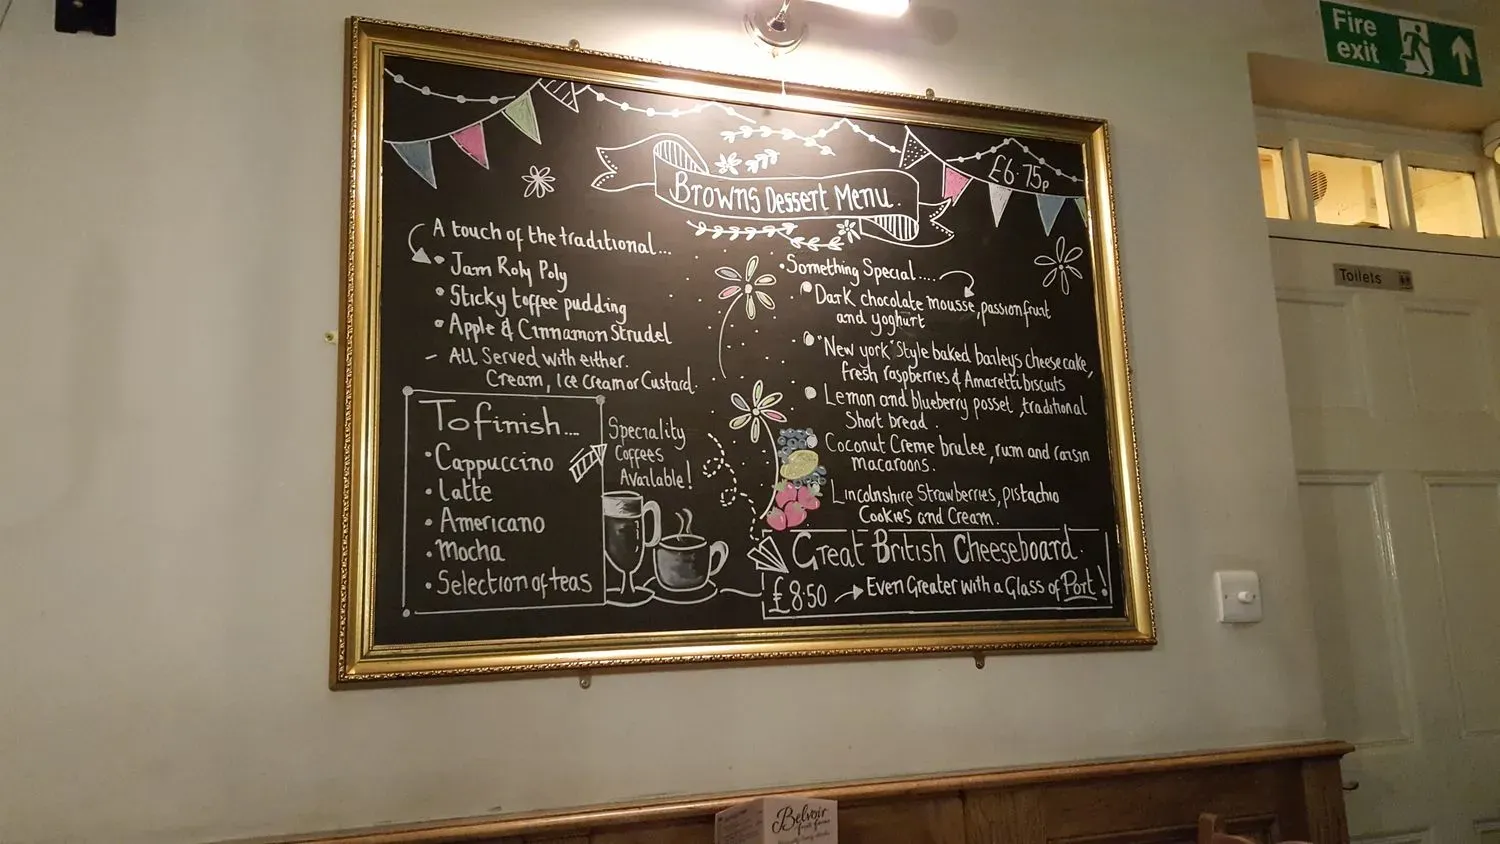 Fire
exit
Toilets
Browns Dessert Menu.
£6.75p
A touch of the traditional...
• Jam Roly Poly
• Sticky toffee pudding
• Apple & Cinnamon Strudel
– All Served with either.
Cream, Ice cream or Custard.
To finish...
• Cappuccino
• Latte
• Americano
• Mocha
• Selection of teas
Speciality
Coffees
Available!
• Something Special....
• Dark chocolate mousse, passionfruit
and yoghurt
• "New york" Style baked baileys cheesecake,
fresh raspberries & Amaretti biscuits
• Lemon and blueberry posset, traditional
Short bread.
Coconut Creme brulee, rum and raisin
macaroons.
Lincolnshire Strawberries, pistachio
Cookies and Cream.
Great British Cheeseboard.
£8.50 → Even Greater with a Glass of Port!
Belvoir
fruit farms